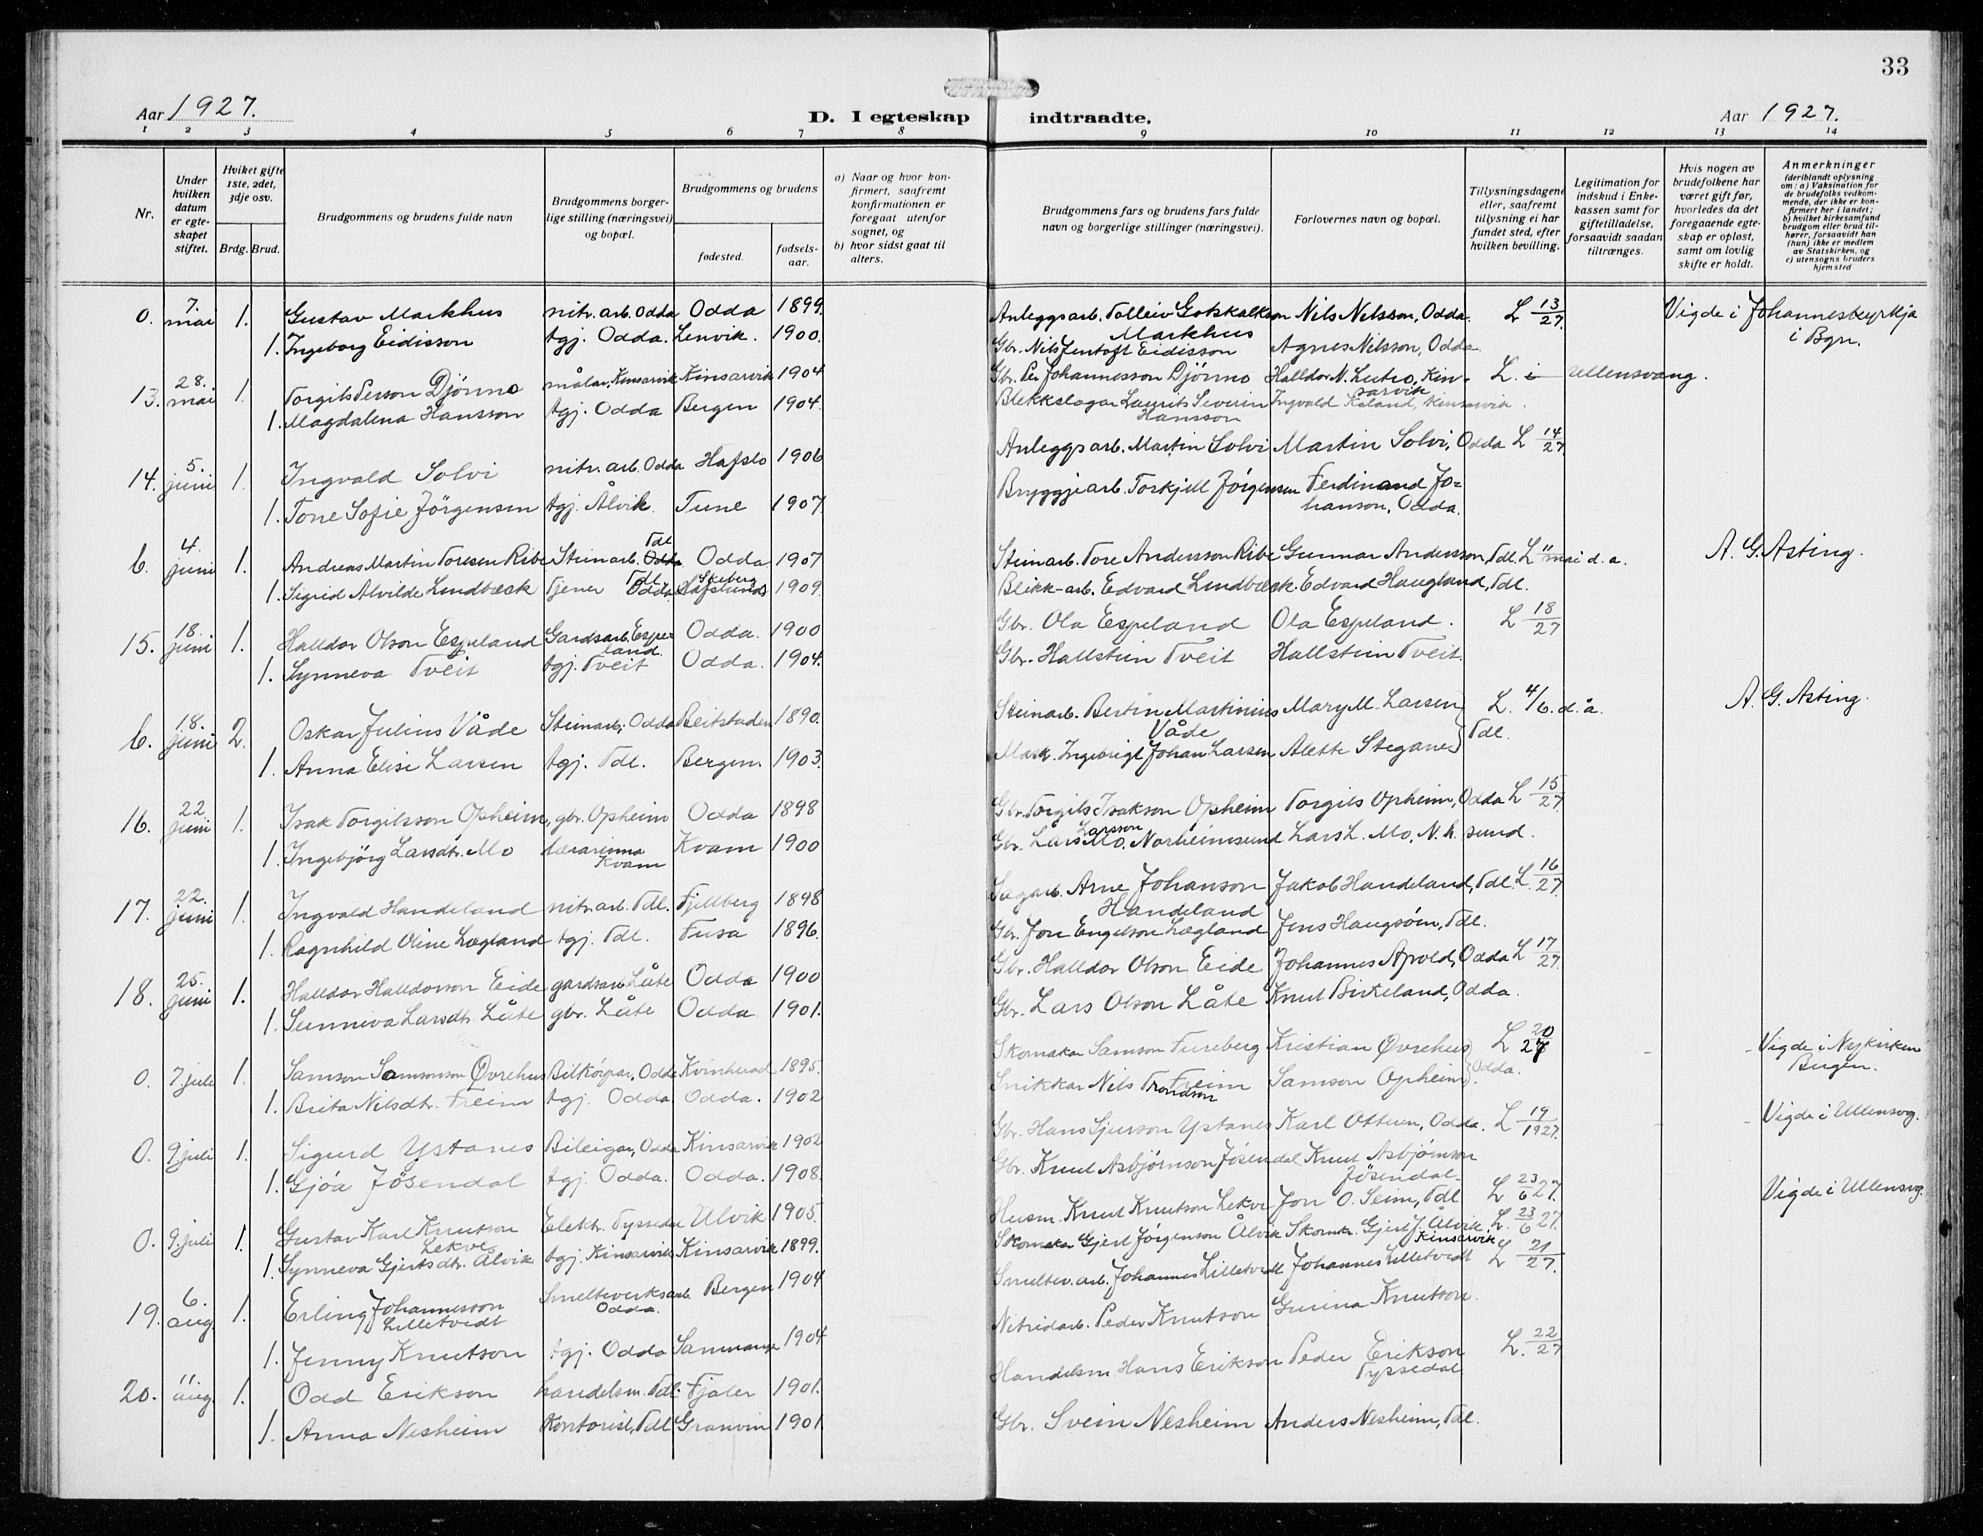 33
Aar 1927. D. I egteskap indtraadte. Aar 1927.
1 2 3 4 5 6 7 8 9 10 11 12 13 14
Nr.
Under hvilken datum er egte-skapet stiftet.
Hviket gifte 1ste, 2det, 3dje osv.
Brdg. Brud.
Brudgommens og brudens fulde navn
Brudgommens borger-lige stilling (næringsvei) og bopæl.
Brudgommens og brudens
fødested. fødsels-aar.
a) Naar og hvor kon-firmert, saafremt konfirmationen er foregaat utenfor sognet, og
b) hvor sidst gaat til alters.
Brudgommens fars og brudens fars fulde navn og borgerlige stillinger (næringsvei).
Forlovernes navn og bopæl.
Tillysningsdagene eller, saafremt tillysning ei har fundet sted, efter hvilken bevilling.
Legitimation for indskud i Enke-kassen samt for giftetilladelse, forsaavidt saadan tiltrænges.
Hvis nogen av brudefolkene har været gift før, hvorledes da det foregaaende egte-skap er opløst, samt om lovlig skifte er holdt.
Anmerkninger (deriblandt oplysning om: a) Vaksination for de brudefolks vedkom-mende, der ikke er kon-firmert her i landet; b) hvilket kirkesamfund brudgom eller brud til-hører, forsaavidt han (hun) ikke er medlem av Statskirken, og c) utensogns bruders hjemsted
0. 7. mai 1. Gustav Markhus nitr. arb. Odda Odda 1899. Anleggsarb. Tolleiv Gotskalkson Markhus Nils Nilsson, Odda. L 13/27. Vigde i Johanneskyrkja i Bgn.
1. Ingeborg Eidisson tgj. Odda. Lenvik. 1900. Gbr. Nils Jentoft Eidisson Agnes Nilsson, Odda.
13. 28. mai 1. Torgils Person Djönno målar, Kinsarvik Kinsarvik 1904 Gbr. Per Johannesson Djönno Halldor N. Lutro, Kinsarvik L. i Ullensvang.
1. Magdalena Hansson tgj. Odda Bergen 1904. Blekkslagar Laurits Severin Hansson Ingvald Kaland, Kinsarvik.
14. 5. juni 1. Ingvald Solvi nitr. arb. Odda Hafslo 1906 Anleggsarb. Martin Solvi Martin Solvi, Odda L 14/27.
1. Tone Sofie Jörgensen tgj. Ålvik. Tune 1907. Bryggjearb. Torkjell Jörgensen Ferdinand Jo=hanson, Odda.
6. 4. juni 1. Andreas Martin Toresen Ribe Steinarb. Odda Tdl Odda 1907 Steinarb. Tore Andersson Ribe Gunnar Andersson, Tdl. L. 11 mai d. a. A. G. Asting.
1. Sigrid Alvilde Lindbæck Tjener Odda Tdl Hafslund Skeberg 1909. Blikk-arb. Edvard Lindbæck. Edvard Haugland, Tdl.
15. 18. juni 1. Halldor Olson Espeland Gardsarb. Espeland Odda. 1900 Gbr. Ola Espeland Ola Espeland. L 18/27
1. Synneva Tveit tgj. Tveit Odda. 1904. Gbr. Hallstein Tveit Hallstein Tveit.
6. 18. juni 2. Oskar Julius Våde Steinarb. Odda Beitstaden 1890. Steinarb. Bertin Martinius Våde Mary M. Larsen L. 4/6. d. å. A. G. Asting.
1. Anna Elise Larsen tgj. Tdl. Bergen. 1903. Mask. Ingebrigt Johan Larsen Alette Stegane Tdl.
16. 22. juni 1. Isak Torgilsson Opheim, gbr. Opheim Odda 1898 Gbr. Torgils Isakson Opheim Torgils Opheim, Odda L 15/27.
1. Ingebjörg Larsdtr. Mo lærarinna Kvam Kvam 1900 Gbr. Lars Larsson Mo, Norheimsund Lars L. Mo, N.h. sund.
17. 22. juni 1. Ingvald Handeland nitr. arb. Tdl. Fjellberg 1898 Sagarb. Arne Johanson Handeland Jakob Handeland, Tdl. L. 16/27.
1. Ragnhild Oline Lægland tgj. Tdl. Fusa 1896. Gbr. Jon Engelson Lægland Jens Haugsöin, Tdl.
18. 25. juni 1. Halldor Halldorson Eide gardsarb. Låte Odda 1900 Gbr. Halldor Olson Eide Johannes Apold, Odda L 17/27.
1. Sunniva Larsdtr. Låte gbr. Låte Odda 1901. Gbr. Lars Olson Låte Knut Birkeland, Odda.
0. 7 juli 1. Samson Samsonson Øvrehus Bilköyrar, Odda Kvinherad 1895. Skomakar Samson Fureberg Kristian Øvrehus L 20/27 Vigde i Nykirken Bergen.
1. Brita Nilsdtr. Freim tgj. Odda Odda. 1902 Snikkar Nils Trondson Freim Samson Opheim Odda.
0. 9 juli 1. Sigurd Ystanes Bileigar, Odda Kinsarvik 1902 Gbr. Hans Sjurson Ystanes Karl Ottun, Odda. L 19/1927. Vigde i Ullensvg.
1. Gjöa Jösendal tgj. Odda. Odda. 1908. Gbr. Knut Asbjörnson Jösendal Knut Asbjörnson Jösendal
0. 9. juli 1. Gustav Karl Knutson Lekve Elektr. Tyssedal Ulvik 1905. Husm. Knut Knutson Lekve Jon O. Seim, Tdl. L 23/6 27. Vigde i Ullensvg.
1. Synneva Gjertsdtr. Alvik tgj. Kinsarvik Kinsarvik 1899. Skomakar Gjert Jörgenson Ålvik Skomk. Gjert J. Ålvik Kinsarvik L. 23/6 27.
19. 6. aug. 1. Erling Johannesson Lilletvedt Smelteverksarb. Odda. Bergen 1904 Smeltev. arb. Johannes Lilletvedt Johannes Lilletvedt L 21/27.
1. Jenny Knutson tgj. Odda Samnanger 1904 Nitridarb. Peder Knutson Gurina Knutson.
20. 11 aug. 1. Odd Erikson handelsm. Tdl. Fjaler 1901. Handelsm. Hans Erikson Peder Erikson Tyssedal L. 22/27
1. Anna Nesheim Kontorist, Tdl Granvin 1901. Gbr. Svein Nesheim Anders Nesheim, Tdl.